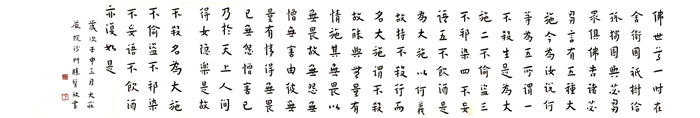 佛世尊一時在
舍衛國祇樹給
孤獨園與苾芻
眾俱佛告諸苾
芻言有五種大
施今為汝說何
等為五所謂一
不殺生是為大
施二不偷盜三
不邪染四不妄
語五不飲酒是
為大施以何義
故持不殺行而
名大施謂不殺
故能與無量有
情施其無畏以
無畏故無怨無
憎無害由彼無
量有情得無畏
已無怨憎害已
乃於天上人間
得安隱樂是故
不殺名為大施
不偷盜不邪染
不妄語不飲酒
亦復如是
歲次壬申三月大莊
嚴院沙門勝髻敬書